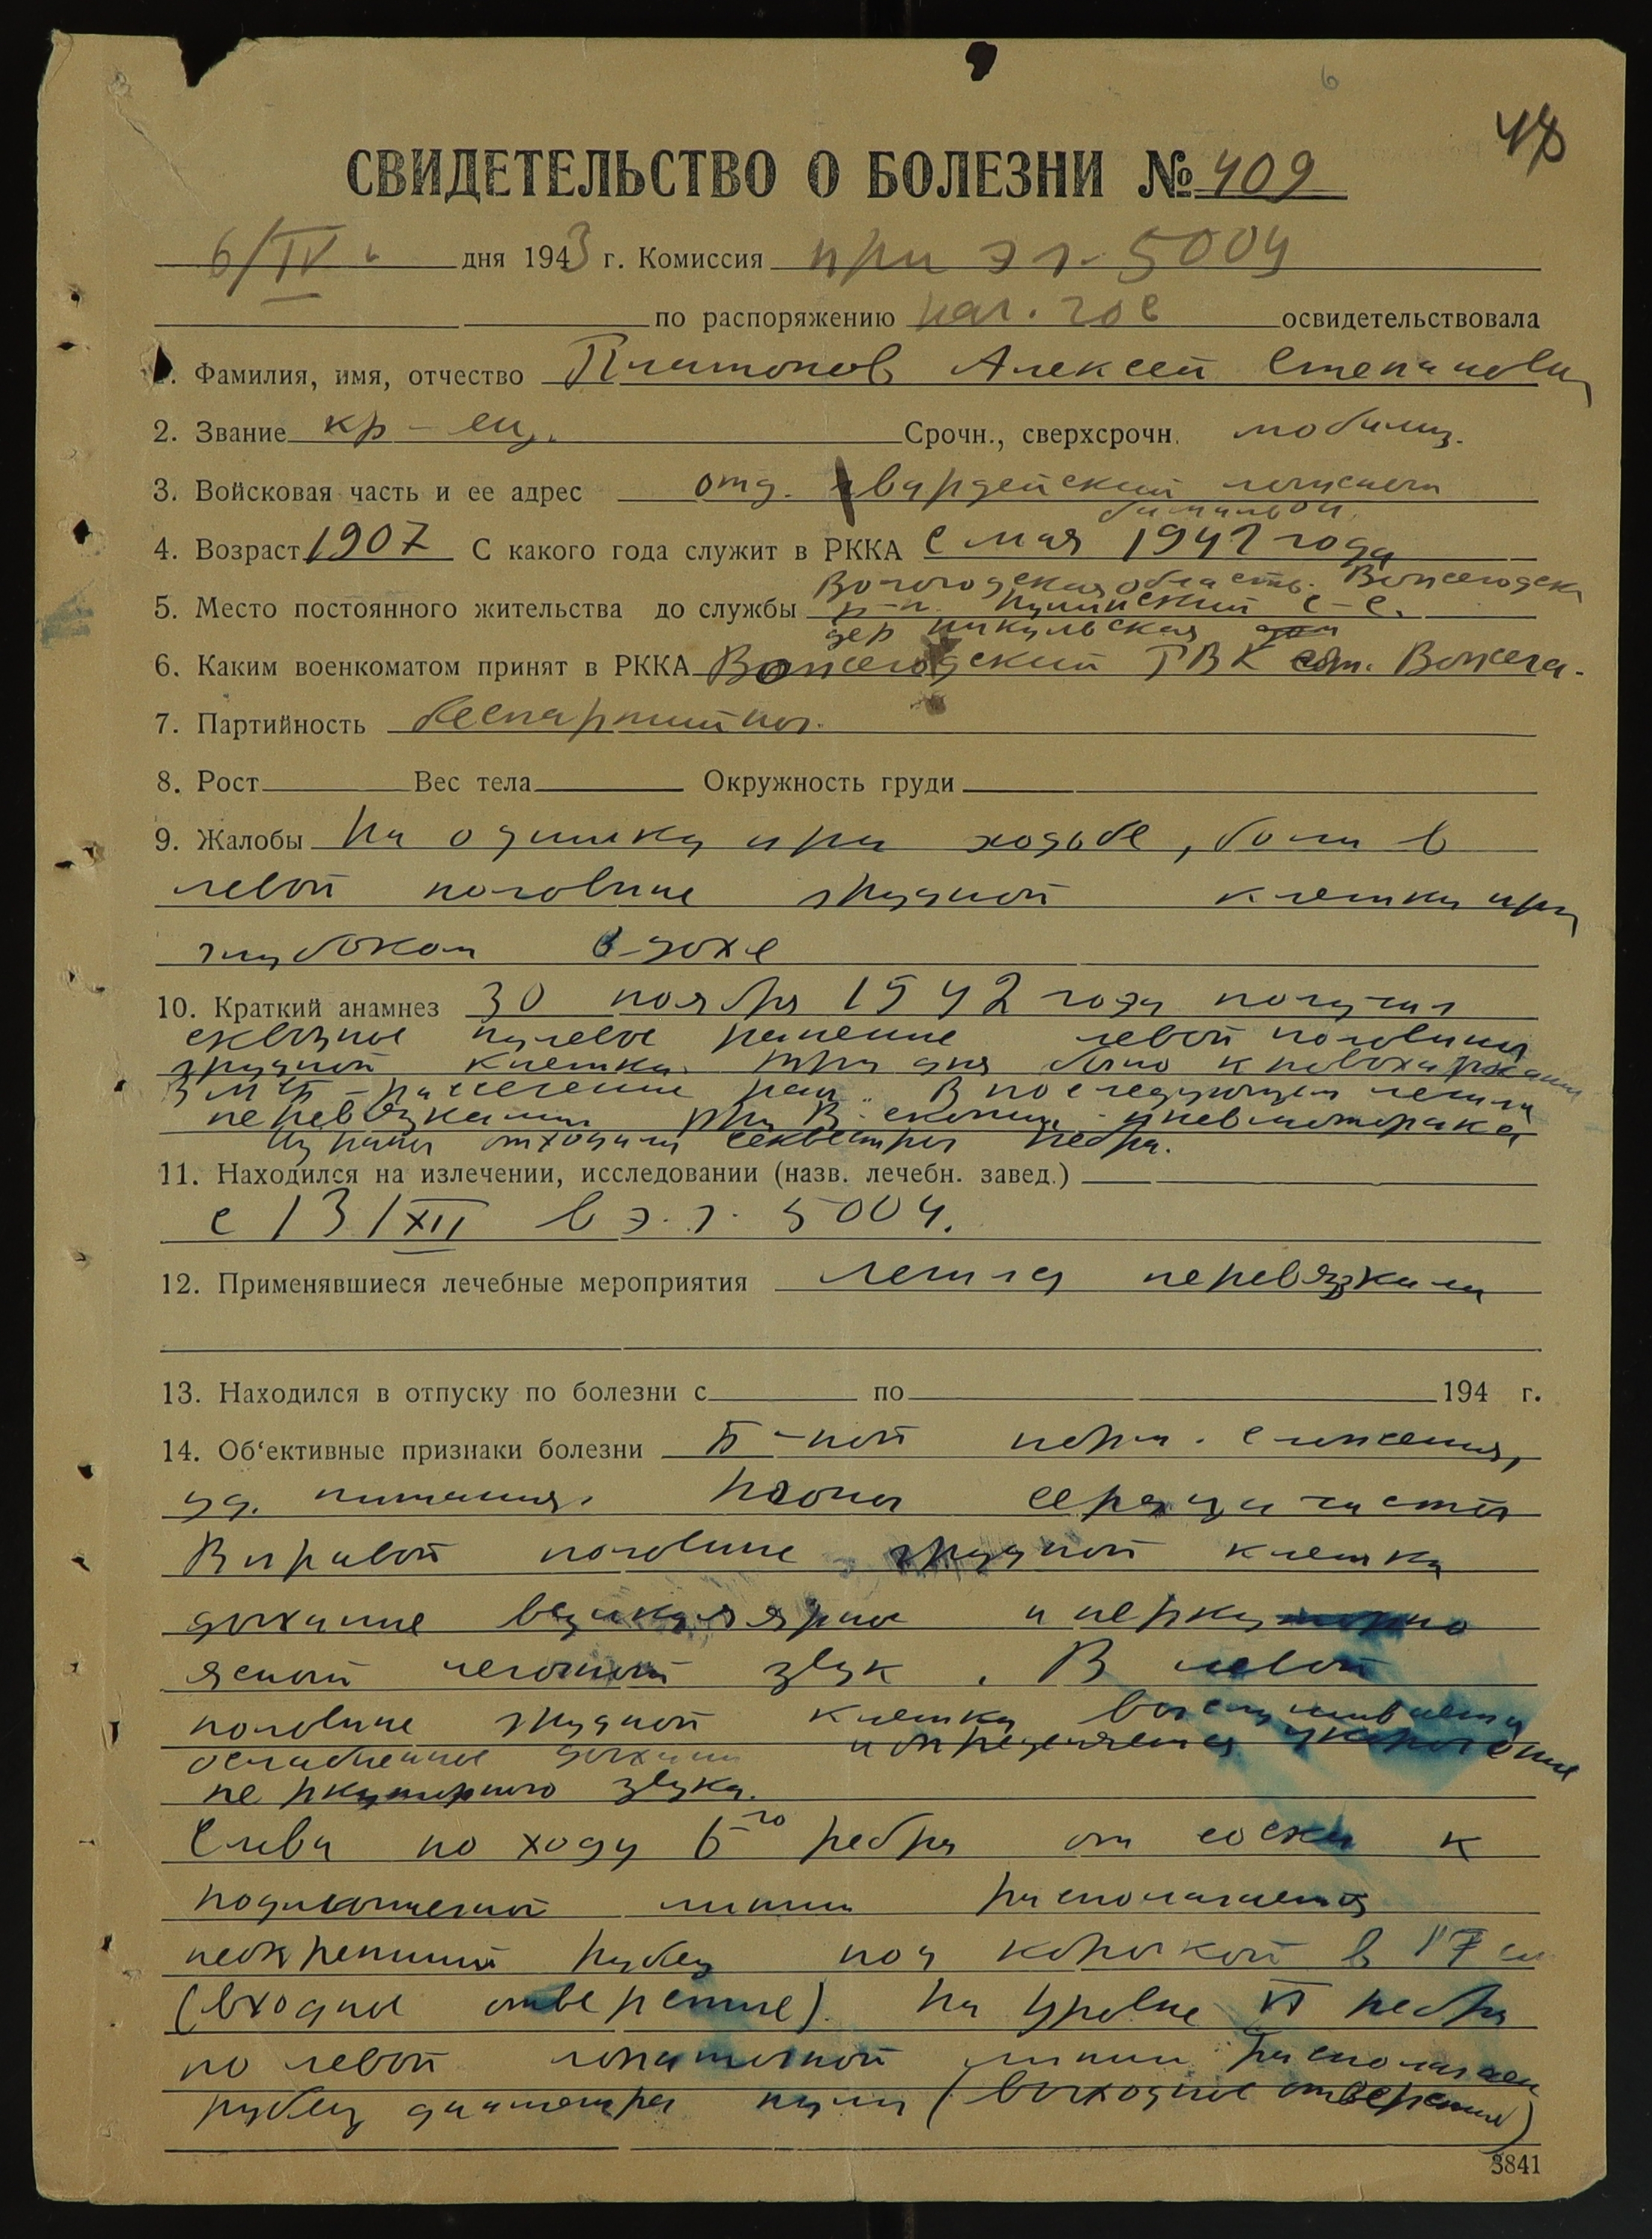 6
48
СВИДЕТЕЛЬСТВО О БОЛЕЗНИ № 409
6/IV дня 1943 г. Комиссия при э г. 5004
по распоряжению нач. гос освидетельствовала
1. Фамилия, имя, отчество Платонов Алексей Степанович
2. Звание кр-ец. Срочн., сверхсрочн. мобилиз.
3. Войсковая часть и ее адрес отд. гвардейский лыжный
батальон
4. Возраст 1907 С какого года служит в РККА с мая 1942 года
Вологодская область. Вожегодск
5. Место постоянного жительства до службы р-н. с-с.
дер Никульская
6. Каким военкоматом принят в РККА Вожегодский РВК ст. Вожега.
7. Партийность беспартийный.
8. Рост Вес тела Окружность груди
9. Жалобы На одышку при ходьбе, боли в
левой половине грудной клетки при
глубоком вдохе
10. Краткий анамнез 30 ноября 1942 года получил
сквозное пулевое ранение левой половины
грудной клетки. Три дня было кровохарканье
В МСБ - рассечение ран. В последующем лечили
перевязками При R-скопии - пневмоторакс
Из раны отходили секвестры ребра.
11. Находился на излечении, исследовании (назв. лечебн. завед.)
с 13/XII в э.г. 5004.
12. Применявшиеся лечебные мероприятия Лечился перевязками
13. Находился в отпуску по болезни с по 194 г.
14. Об‘ективные признаки болезни Б-ной норм. сложения,
уд. питания. Тоны сердца чисты
В правой половине грудной клетки
дыхание везикулярное и перкуторно
ясный легочный звук. В левой
половине грудной клетки выслушивается
ослабленное дыхание и определяется укорочение
перкуторного звука.
Слева по ходу 6-го ребра от соска к
подмышечной линии располагается
неокрепший рубец под корочкой в 17 см
(входное отверстие). На уровне VI ребра
по левой лопаточной линии располагается
рубец диаметра пули (выходное отверстие)
3841